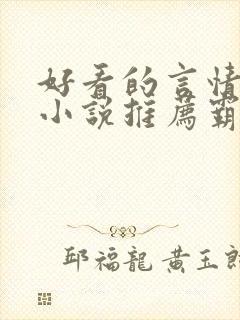 好看的言情
小説推薦霸
邱福龍 黃玉郎